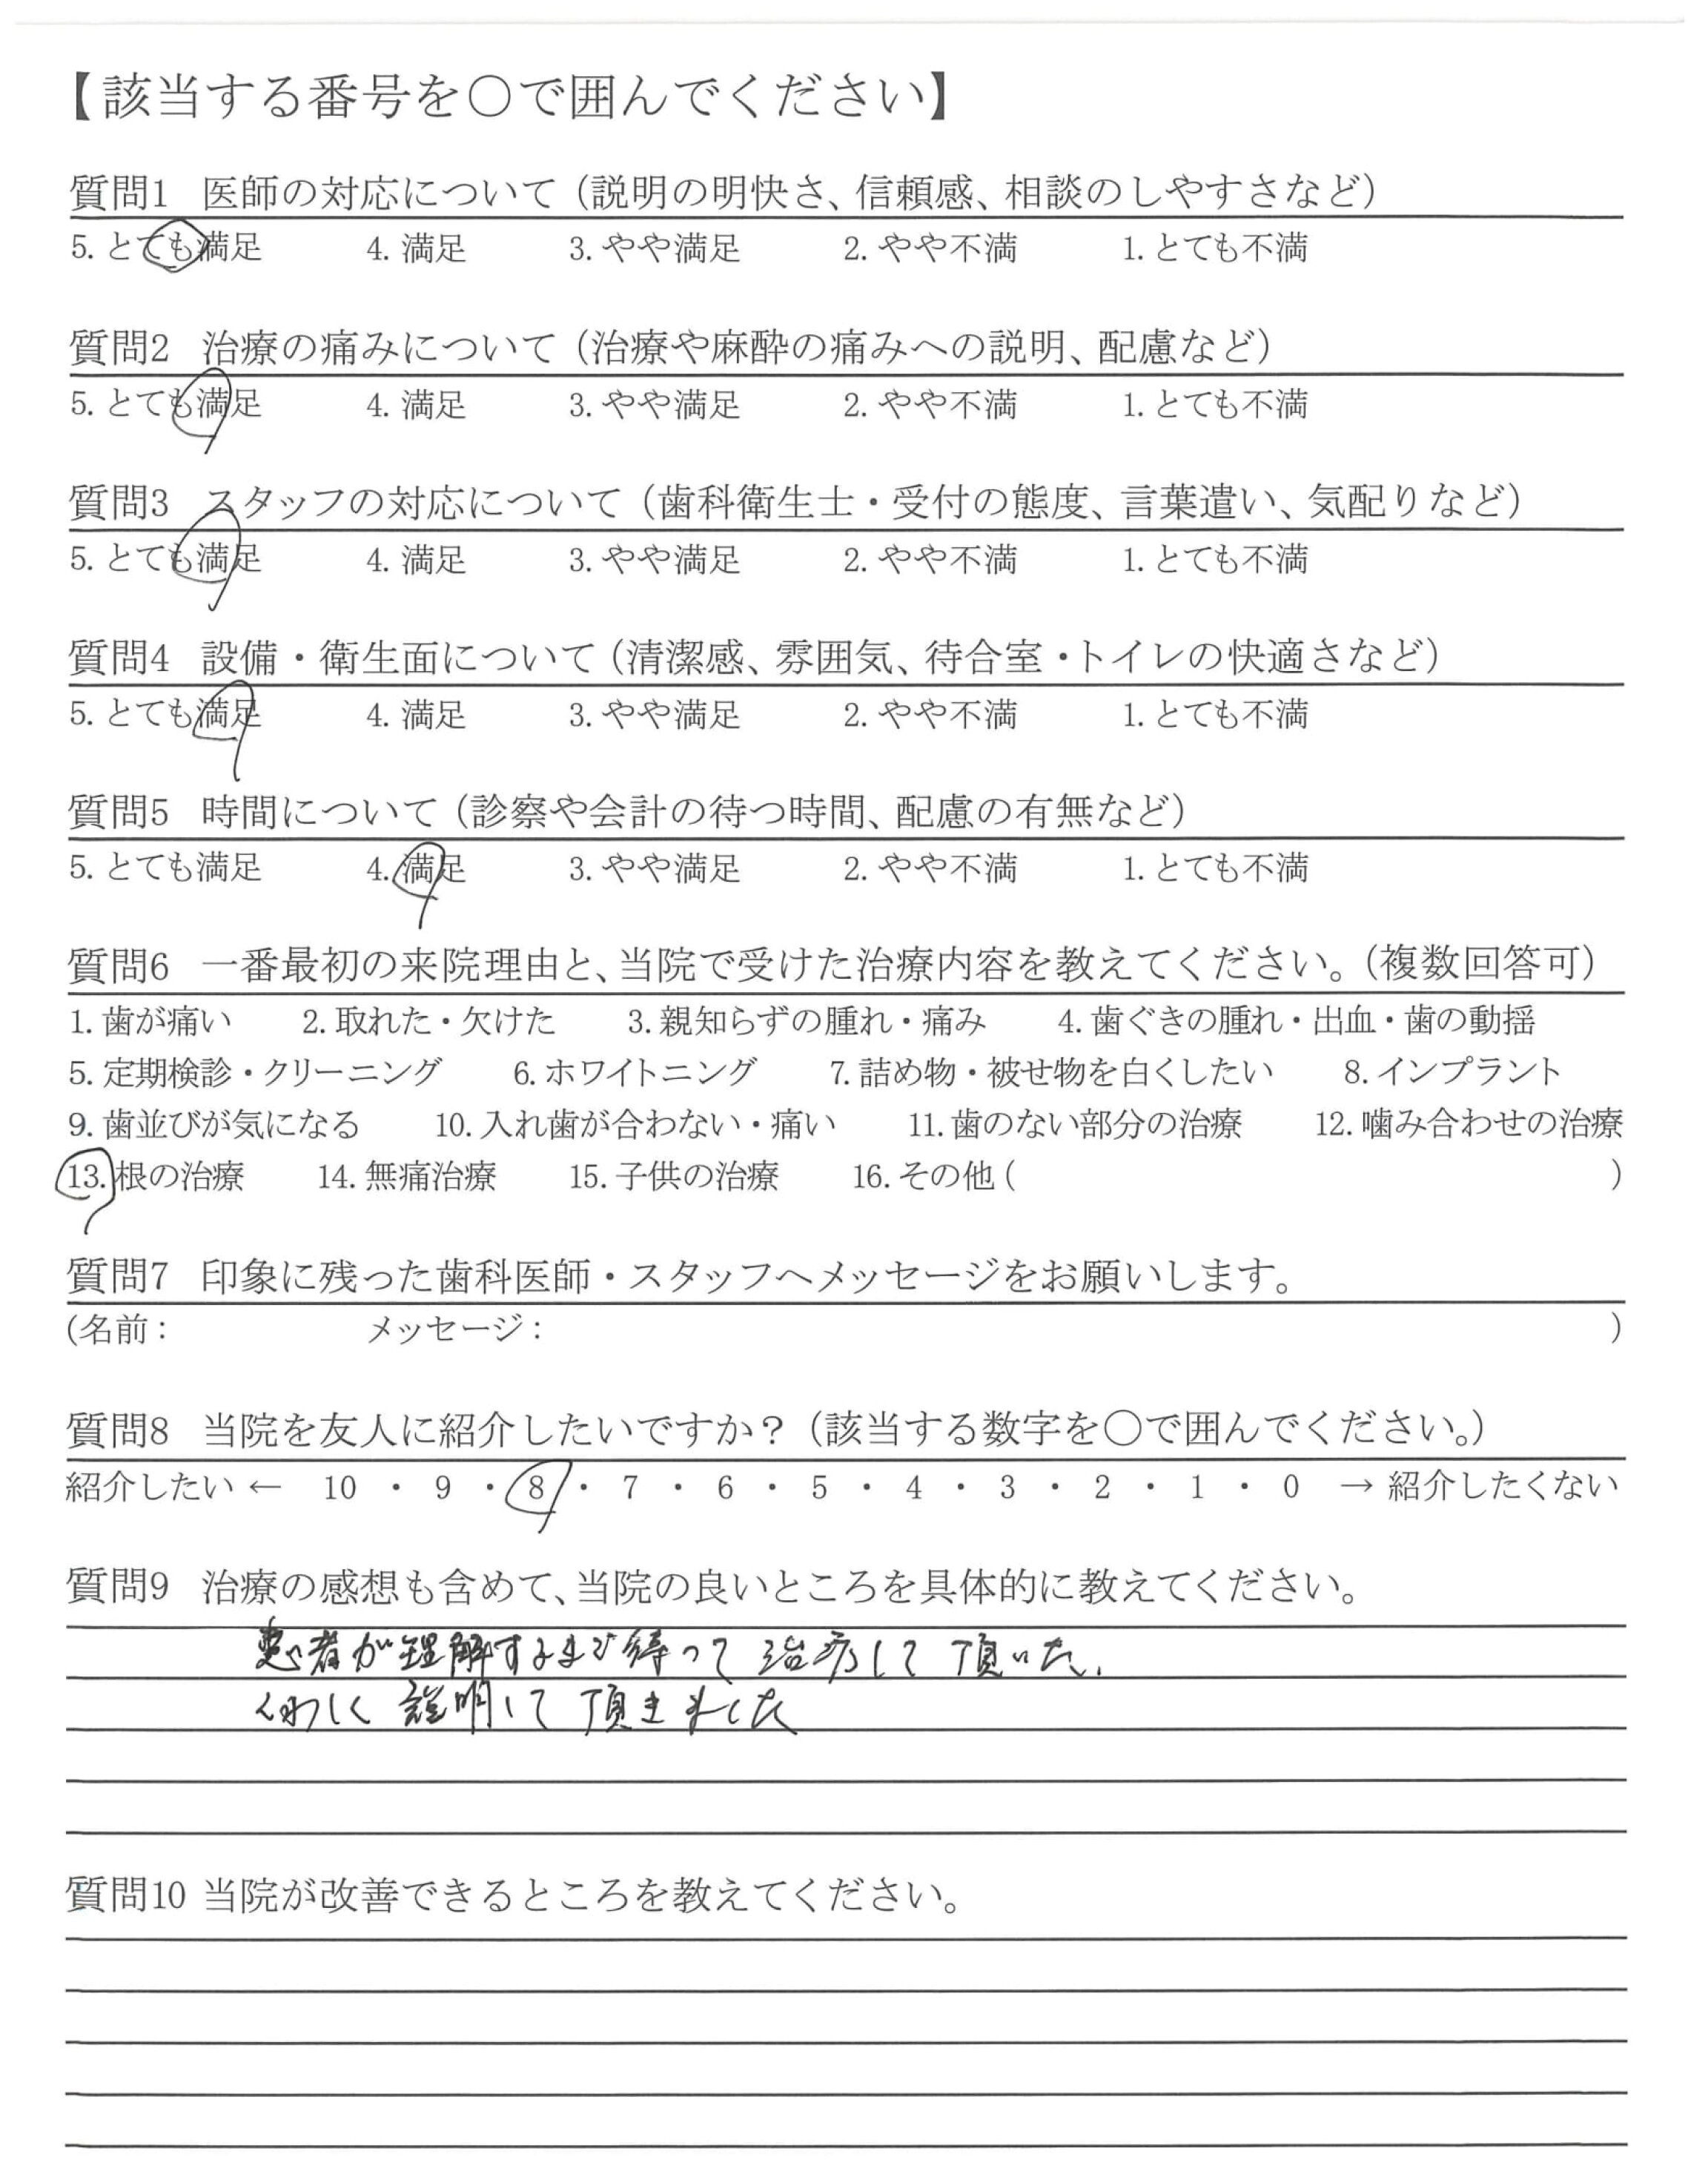 【該当する番号を○で囲んでください】
質問1 医師の対応について（説明の明快さ、信頼感、相談のしやすさなど）
5. とても満足 4. 満足 3. やや満足 2. やや不満 1. とても不満
質問2 治療の痛みについて（治療や麻酔の痛みへの説明、配慮など）
5. とても満足 4. 満足 3. やや満足 2. やや不満 1. とても不満
質問3 スタッフの対応について（歯科衛生士・受付の態度、言葉遣い、気配りなど）
5. とても満足 4. 満足 3. やや満足 2. やや不満 1. とても不満
質問4 設備・衛生面について（清潔感、雰囲気、待合室・トイレの快適さなど）
5. とても満足 4. 満足 3. やや満足 2. やや不満 1. とても不満
質問5 時間について（診察や会計の待つ時間、配慮の有無など）
5. とても満足 4. 満足 3. やや満足 2. やや不満 1. とても不満
質問6 一番最初の来院理由と、当院で受けた治療内容を教えてください。（複数回答可）
1. 歯が痛い 2. 取れた・欠けた 3. 親知らずの腫れ・痛み 4. 歯ぐきの腫れ・出血・歯の動揺
5. 定期検診・クリーニング 6. ホワイトニング 7. 詰め物・被せ物を白くしたい 8. インプラント
9. 歯並びが気になる 10. 入れ歯が合わない・痛い 11. 歯のない部分の治療 12. 噛み合わせの治療
13. 根の治療 14. 無痛治療 15. 子供の治療 16. その他 ( )
質問7 印象に残った歯科医師・スタッフへメッセージをお願いします。
(名前： メッセージ： )
質問8 当院を友人に紹介したいですか？（該当する数字を○で囲んでください。）
紹介したい ← 10 ・ 9 ・ 8 ・ 7 ・ 6 ・ 5 ・ 4 ・ 3 ・ 2 ・ 1 ・ 0 → 紹介したくない
質問9 治療の感想も含めて、当院の良いところを具体的に教えてください。
患者が理解するまで待って治療して頂いた。
くわしく説明して頂きました
質問10 当院が改善できるところを教えてください。